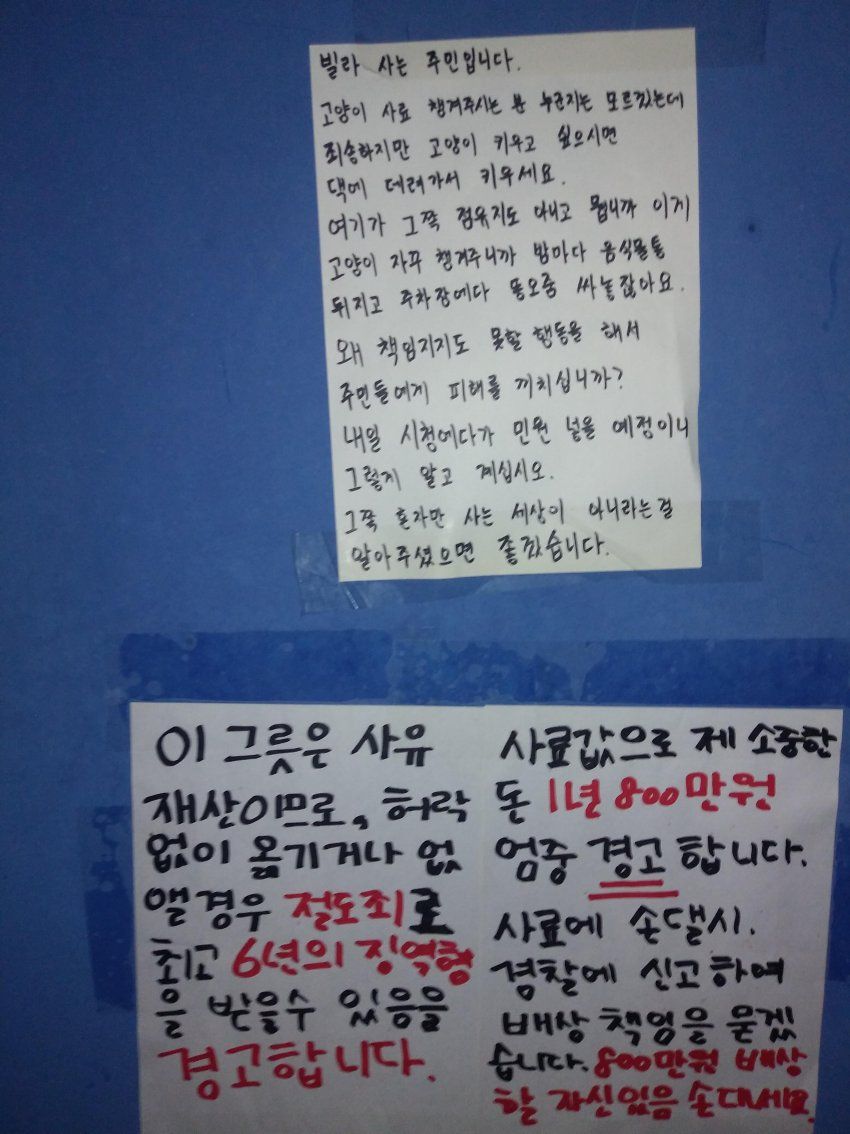 빌라 사는 주민입니다.
고양이 사료 챙겨주시는 분 누군지는 모르겠는데
죄송하지만 고양이 키우고 싶으시면
댁에 데려가서 키우세요.
여기가 그쪽 점유지도 아니고 뭡니까 이게
고양이 자꾸 챙겨주니까 밤마다 음식물통
뒤지고 주차장에다 똥오줌 싸놓잖아요.
왜 책임지지도 못할 행동을 해서
주민들에게 피해를 끼치십니까?
내일 시청에다가 민원 넣을 예정이니
그렇게 알고 계십시오.
그쪽 혼자만 사는 세상이 아니라는걸
알아주셨으면 좋겠습니다.
이 그릇은 사유
재산이므로, 허락
없이 옮기거나 없
앨경우 절도죄로
최고 6년의 징역형
을 받을수 있음을
경고합니다.
사료값으로 제 소중한
돈 1년 800만원
엄중 경고 합니다.
사료에 손댈시.
경찰에 신고하여
배상 책임을 묻겠
습니다. 800만원 배상
할 자신있음 손대세요.